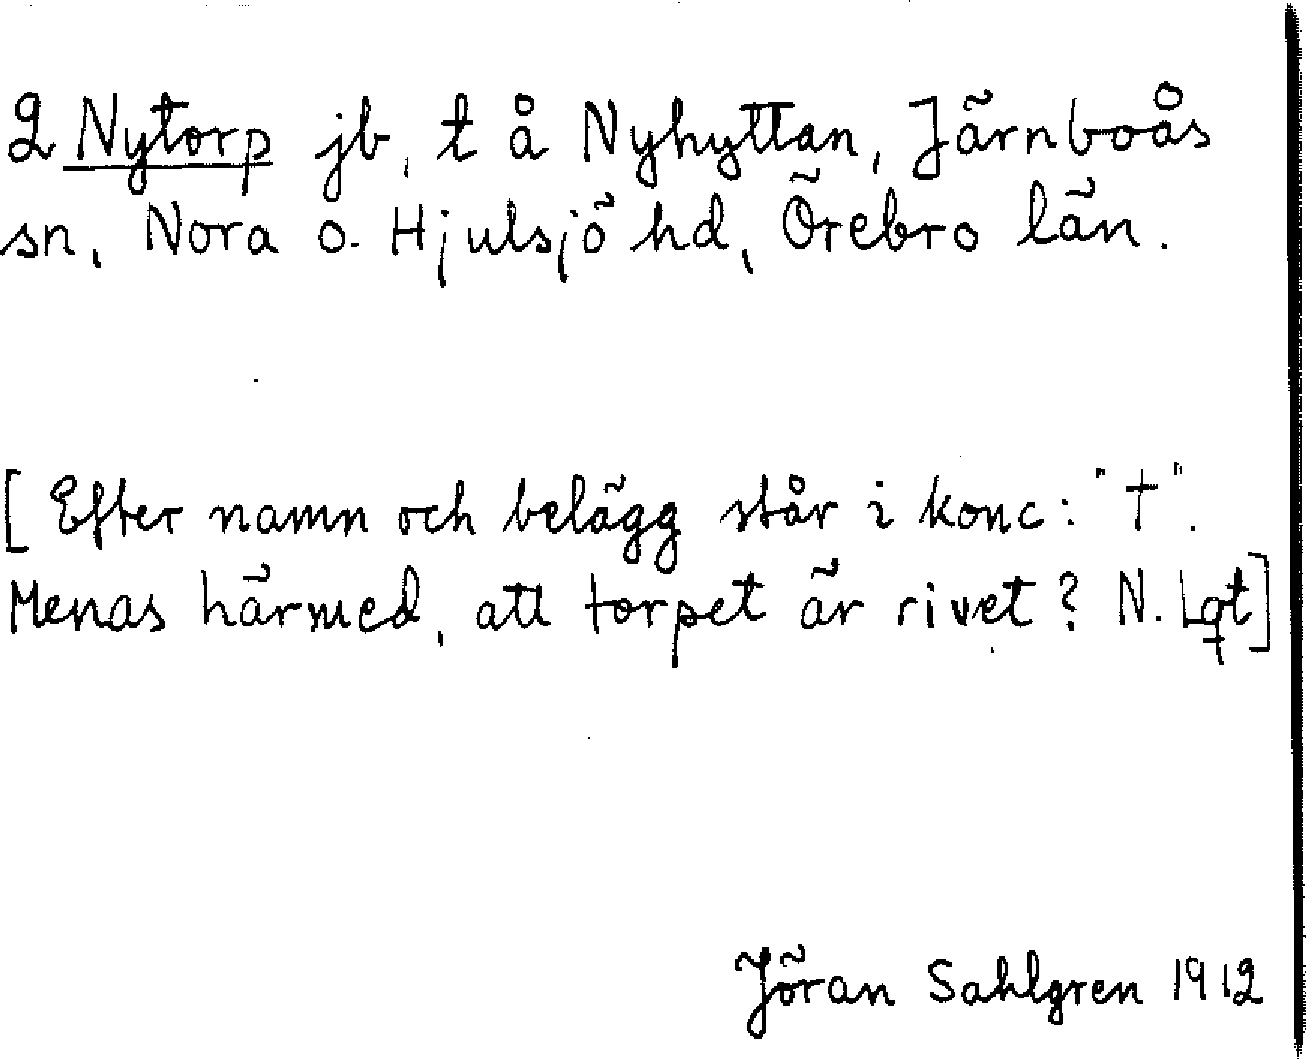 2 Nytorp jb, t å Nyhyttan, Järnboås
sn, Nora o. Hjulsjö hd, Örebro län.
[Efter namn och belägg står i konc: "†".
Menas härmed, att torpet är rivet? N. Lqt]
Jöran Sahlgren 1912